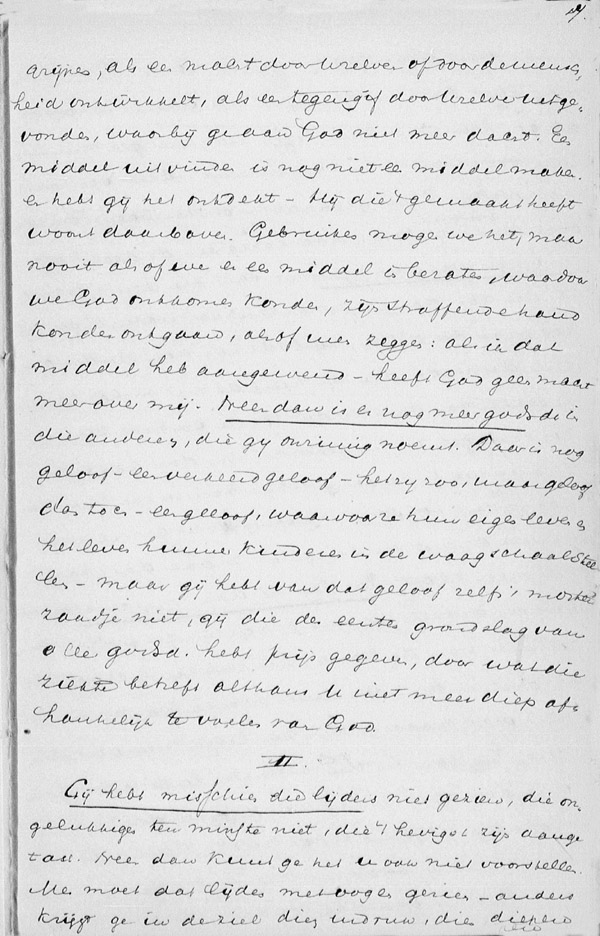 4.
grijpen, als een macht door u zelven of door de mensch,
heid ontwikkelt, als een tegengif door u zelven uitge,
vonden, waarbij ge aan God niet meer dacht. Een
middel uitvinden is nog niet een middel maken.
en hebt gij het ontdekt – Hij die 't gemaakt heeft
woont daarboven. Gebruiken mogen we het, maar
nooit alsof we er een middel in bezaten, waardoor
we God ontkomen konden, zijn straffende hand
konden ontgaan, alsof men zeggen: als ik dat
middel heb aangewend – heeft God geen macht
meer over mij. Neen dan is er nog meer godsd. in
die anderen, die gij onzinnig noemt. Daar is nog
geloof – een verkeerd geloof – het zij zoo, maar geloof
dan toch – een geloof, waarvoor ze hun eigen leven en
het leven hunner kinderen in de waagschaal stel
len – maar gij hebt van dat geloof zelfs 't mosterd
zaadje niet, gij die den eersten grondslag van
alle godsd. hebt prijs gegeven, door wat die
ziekte betreft althans u niet meer diep af,
hankelijk te voelen van God.
II.
Gij hebt misschien die lijders niet gezien, die on,
gelukkigen ten minste niet, die 't hevigst zijn aange
tast. Neen dan kunt ge het u ook niet voorstellen.
Men moet dat lijden met oogen gezien – anders
krijgt ge in de ziel dien indruk, dien diepen